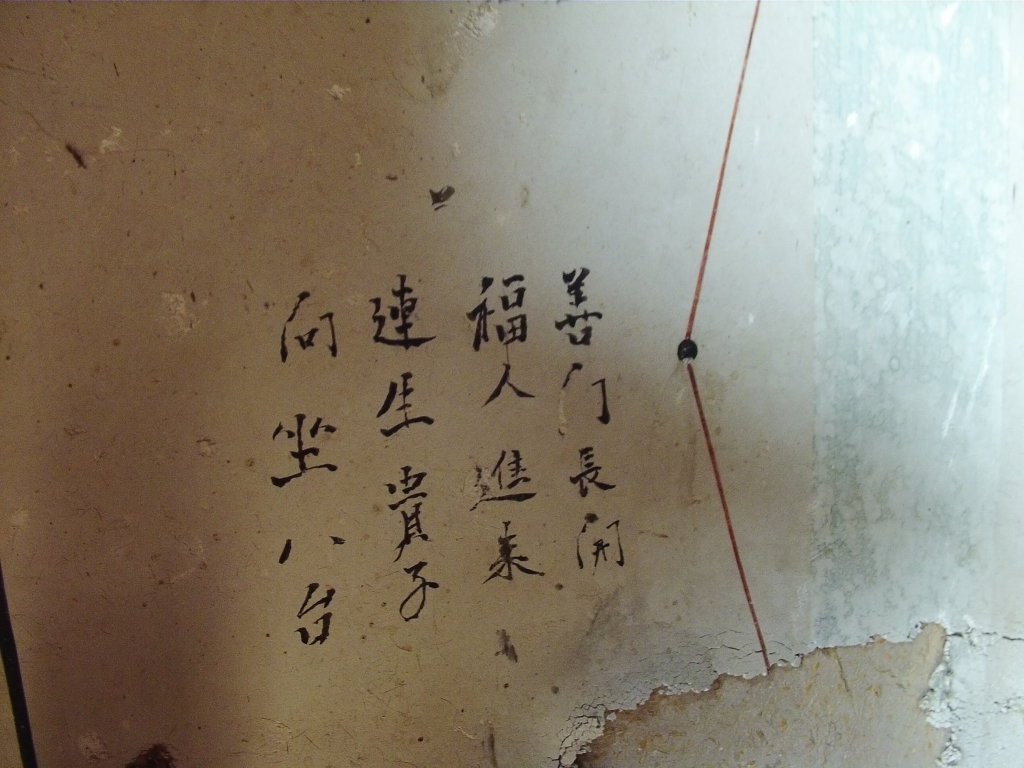 善门長開
福人進来
連生貴子
向坐八台